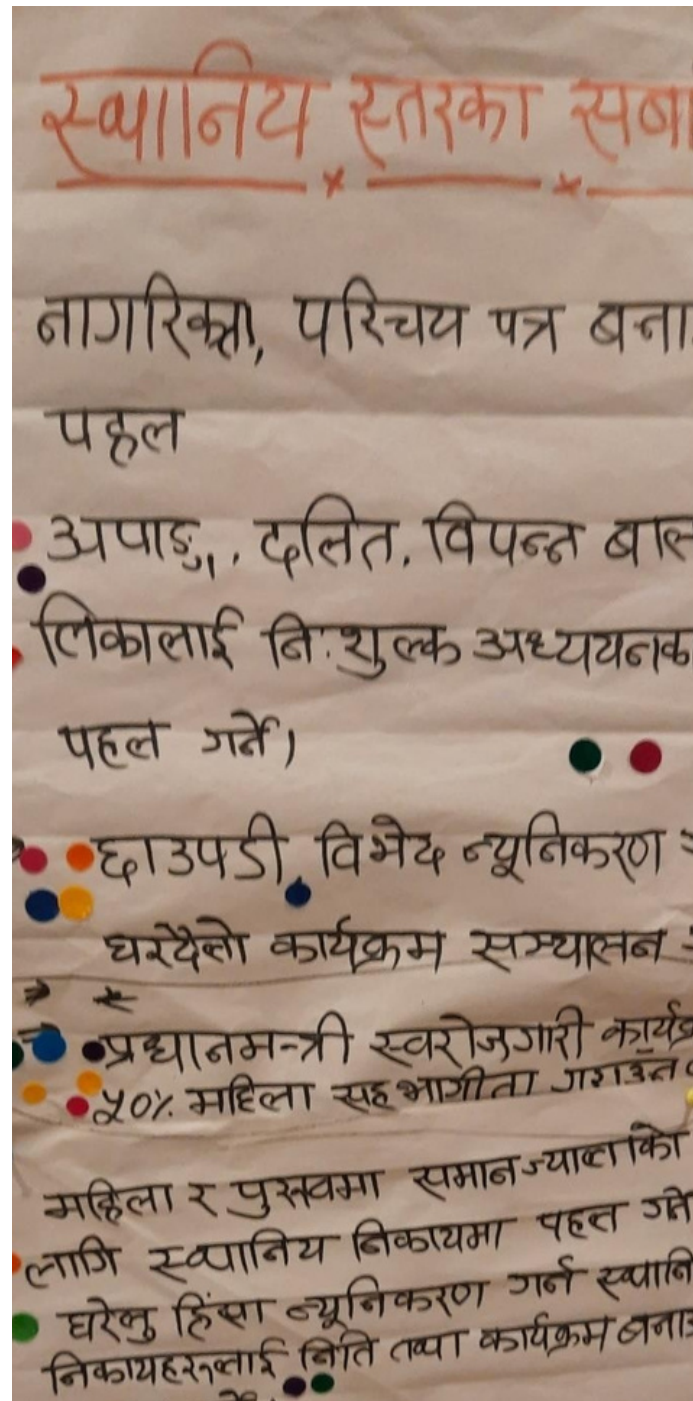 स्थानिय स्तरका सबा
नागरिक्ता, परिचय पत्र बना
पहल
अपाङ्ग, दलित, विपन्न बाल
लिकालाई नि:शुल्क अध्ययनक
पहल गर्ने।
छाउपडी, विभेद न्यूनिकरण
घरदैलो कार्यक्रम सञ्चालन
प्रधानमन्त्री स्वरोजगारी कार्यक्र
५०% महिला सहभागीता गराउन
महिला र पुरुषमा समान ज्याला
लागि स्थानिय निकायमा पहल गर्ने
घरेलु हिंसा न्यूनिकरण गर्न स्थानि
निकायहरुलाई निति तथा कार्यक्रम बनाउ